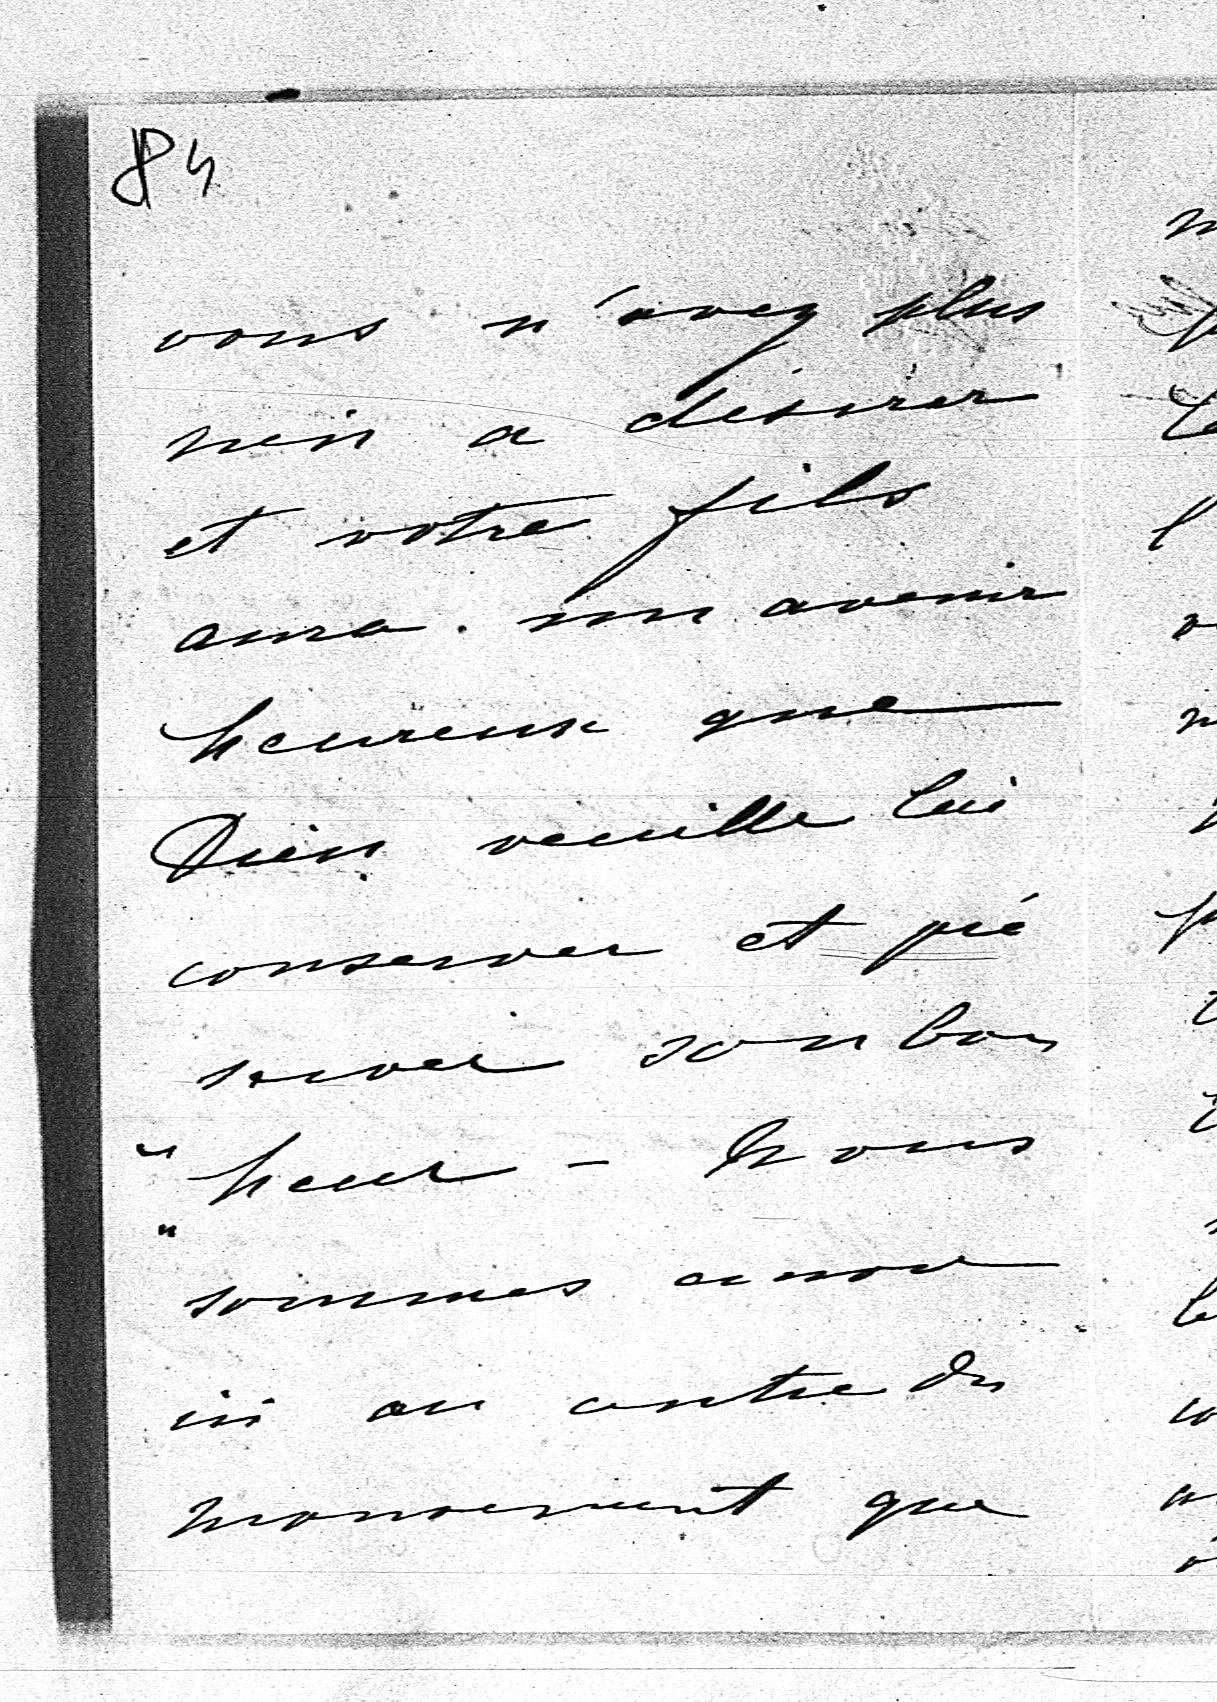 84
vous n'avez plus
rien a désirer
et votre fils
aura un avenir
heureux que
Dieu veuille lui
conserver et pré
server son bon
" heur - Nous
"
sommes encore
ici au centre du
mouvement que